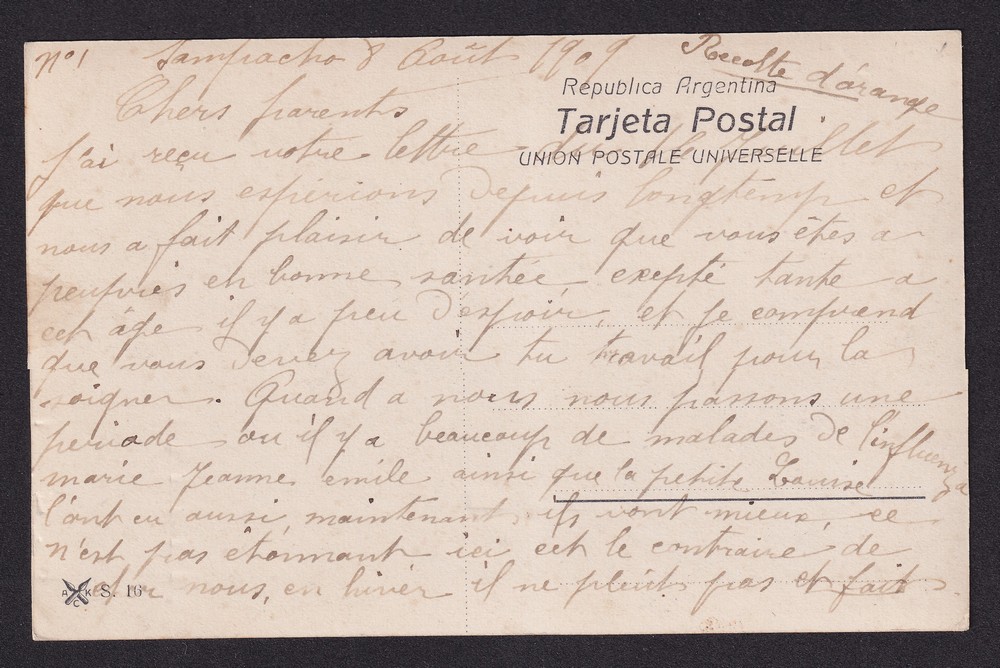 N° 1 Sampacho 8 Août 1909 Recolte d'orange
Republica Argentina
Chers parents
Tarjeta Postal
UNION POSTALE UNIVERSELLE
J'ai reçu votre lettre du Juillet
que nous esperions depuis longtemp et
nous a fait plaisir de voir que vous êtes a
peuprès en bonne santée, exepté tante a
cet âge il y a peu d'espoir, et je comprend
que vous devez avoir tu travail pour la
soigner. Quand a nous nous passons une
periode ou il y a beaucoup de malades de l'influenza
marie Jeanne emile ainsi que la petite Louise
l'ont eu aussi, maintenant ils vont mieux, ce
n'est pas étonnant ici cet le contraire de
nous, en hiver il ne pleut pas et fait
A C K S. 16